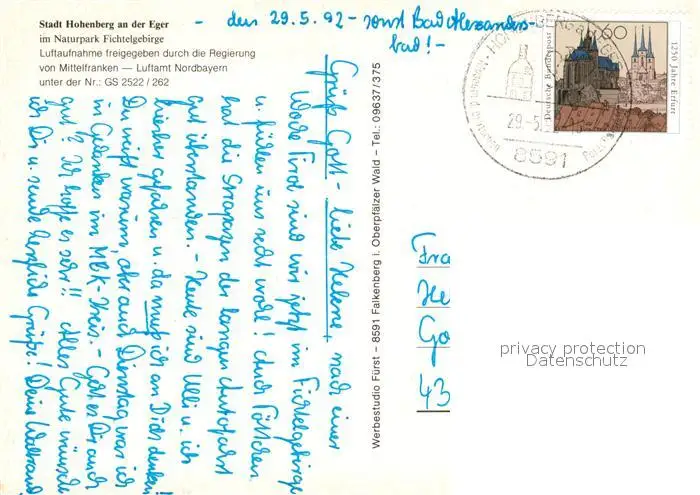 Stadt Hohenberg an der Eger
im Naturpark Fichtelgebirge
Luftaufnahme freigegeben durch die Regierung
von Mittelfranken — Luftamt Nordbayern
unter der Nr.: GS 2522 / 262
- den 29.5.92 - sonst Bad Alexanders-
bad! -
Grüß Gott - liebe Helene, nach einer
Woche sind wir jetzt im Fichtelgebirge
u. fühlen uns recht wohl! Auch
hat die Strapazen der langen Autofahrt
gut überstanden. - Heute sind Ulli u. ich
hierher gefahren u. da muß ich an Dich denken!
Du weißt warum, aber auch Dienstag war ich
in Gedanken im MBK-Kreis. - Geht es Dir auch
gut? Ich hoffe es sehr!! Alles Gute wünsche
ich Dir u. sende herzliche Grüße! Deine Waltraud
Werbestudio Fürst – 8591 Falkenberg i. Oberpfälzer Wald – Tel.: 09637/375
60
Deutsche Bundespost
1250 Jahre Erfurt
29.-5.
8591
Fra
He
Go
43
privacy protection
Datenschutz